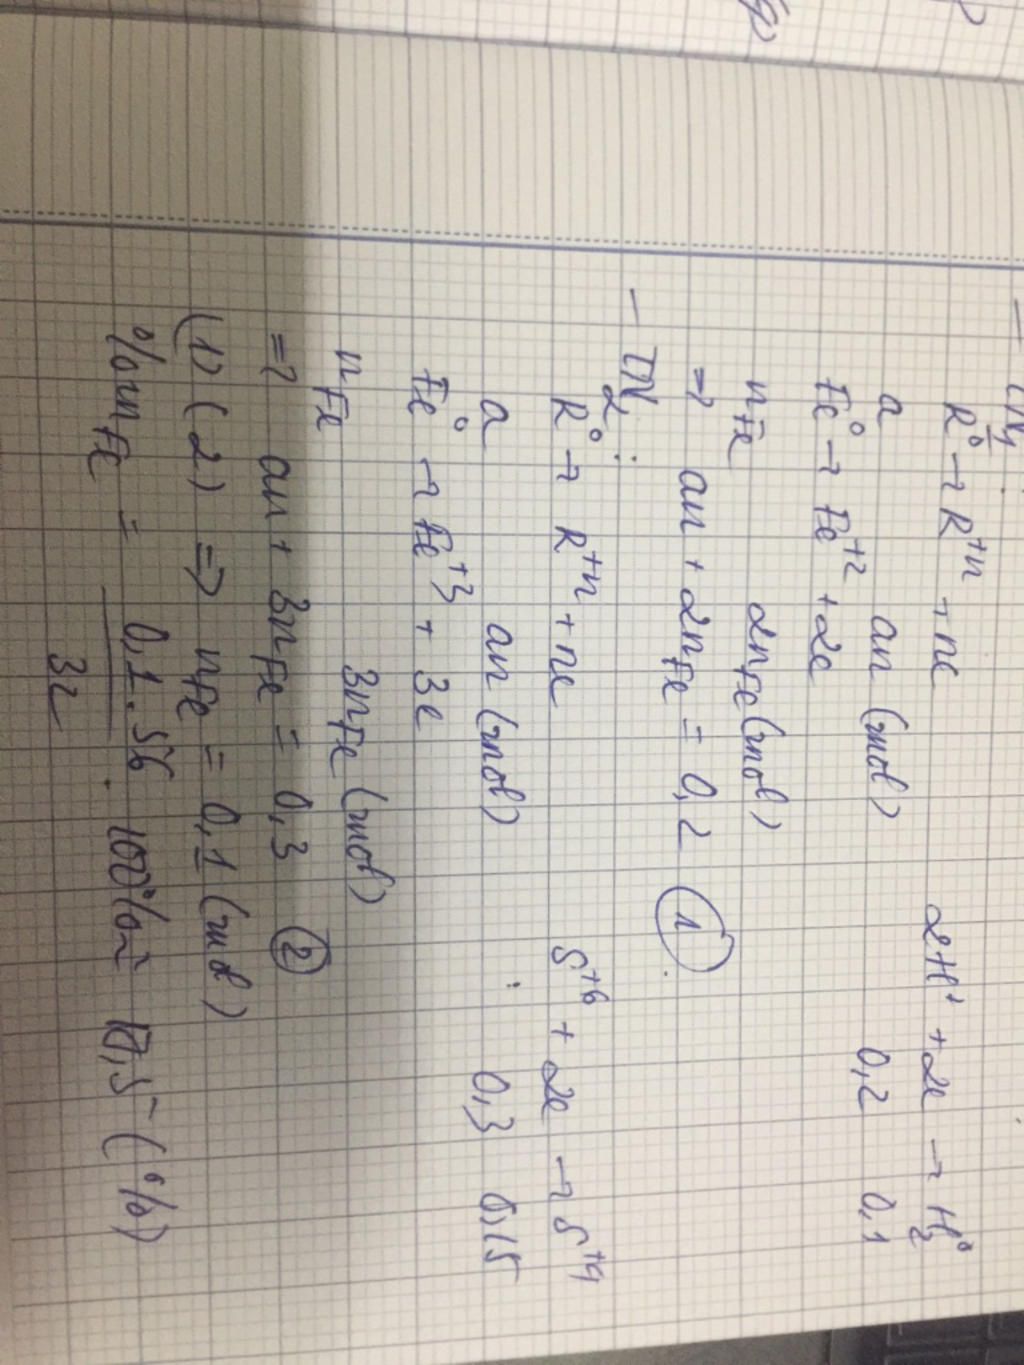 - TN1
R⁰ → R⁺ⁿ + ne 2H⁺ + 2e → H₂⁰
a an (mol) 0,2 0,1
Fe⁰ → Fe⁺² + 2e
nFe 2nFe (mol)
=> an + 2nFe = 0,2 ①
- TN2:
R⁰ → R⁺ⁿ + ne S⁺⁶ + 2e → S⁺⁴
a an (mol) 0,3 0,15
Fe⁰ → Fe⁺³ + 3e
nFe 3nFe (mol)
=> an + 3nFe = 0,3 ②
(1)(2) => nFe = 0,1 (mol)
%mFe = 0,1.56 . 100% = 17,5 (%)
32